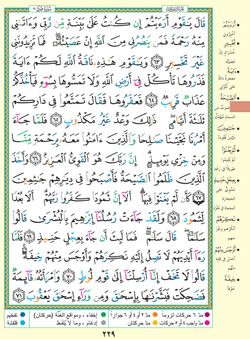 قَالَ يَٰقَوْمِ أَرَءَيْتُمْ إِن كُنتُ عَلَىٰ بَيِّنَةٍ مِّن رَّبِّى وَءَاتَىٰنِى
مِنْهُ رَحْمَةً فَمَن يَنصُرُنِى مِنَ ٱللَّهِ إِنْ عَصَيْتُهُۥ فَمَا تَزِيدُونَنِى
غَيْرَ تَخْسِيرٍ ٦٣ وَيَٰقَوْمِ هَٰذِهِۦ نَاقَةُ ٱللَّهِ لَكُمْ ءَايَةً
فَذَرُوهَا تَأْكُلْ فِىٓ أَرْضِ ٱللَّهِ وَلَا تَمَسُّوهَا بِسُوٓءٍ فَيَأْخُذَكُمْ
عَذَابٌ قَرِيبٌ ٦٤ فَعَقَرُوهَا فَقَالَ تَمَتَّعُوا۟ فِى دَارِكُمْ
ثَلَٰثَةَ أَيَّامٍ ذَٰلِكَ وَعْدٌ غَيْرُ مَكْذُوبٍ ٦٥ فَلَمَّا جَآءَ
أَمْرُنَا نَجَّيْنَا صَٰلِحًا وَٱلَّذِينَ ءَامَنُوا۟ مَعَهُۥ بِرَحْمَةٍ مِّنَّا
وَمِنْ خِزْىِ يَوْمِئِذٍ إِنَّ رَبَّكَ هُوَ ٱلْقَوِىُّ ٱلْعَزِيزُ ٦٦ وَأَخَذَ
ٱلَّذِينَ ظَلَمُوا۟ ٱلصَّيْحَةُ فَأَصْبَحُوا۟ فِى دِيَٰرِهِمْ جَٰثِمِينَ
٦٧ كَأَن لَّمْ يَغْنَوْا۟ فِيهَآ أَلَآ إِنَّ ثَمُودَا۟ كَفَرُوا۟ رَبَّهُمْ أَلَا بُعْدًا
لِّثَمُودَ ٦٨ وَلَقَدْ جَآءَتْ رُسُلُنَآ إِبْرَٰهِيمَ بِٱلْبُشْرَىٰ قَالُوا۟
سَلَٰمًا قَالَ سَلَٰمٌ فَمَا لَبِثَ أَن جَآءَ بِعِجْلٍ حَنِيذٍ ٦٩ فَلَمَّا
رَءَآ أَيْدِيَهُمْ لَا تَصِلُ إِلَيْهِ نَكِرَهُمْ وَأَوْجَسَ مِنْهُمْ خِيفَةً
قَالُوا۟ لَا تَخَفْ إِنَّآ أُرْسِلْنَآ إِلَىٰ قَوْمِ لُوطٍ ٧٠ وَٱمْرَأَتُهُۥ قَآئِمَةٌ
فَضَحِكَتْ فَبَشَّرْنَٰهَا بِإِسْحَٰقَ وَمِن وَرَآءِ إِسْحَٰقَ يَعْقُوبَ ٧١
٢٢٩